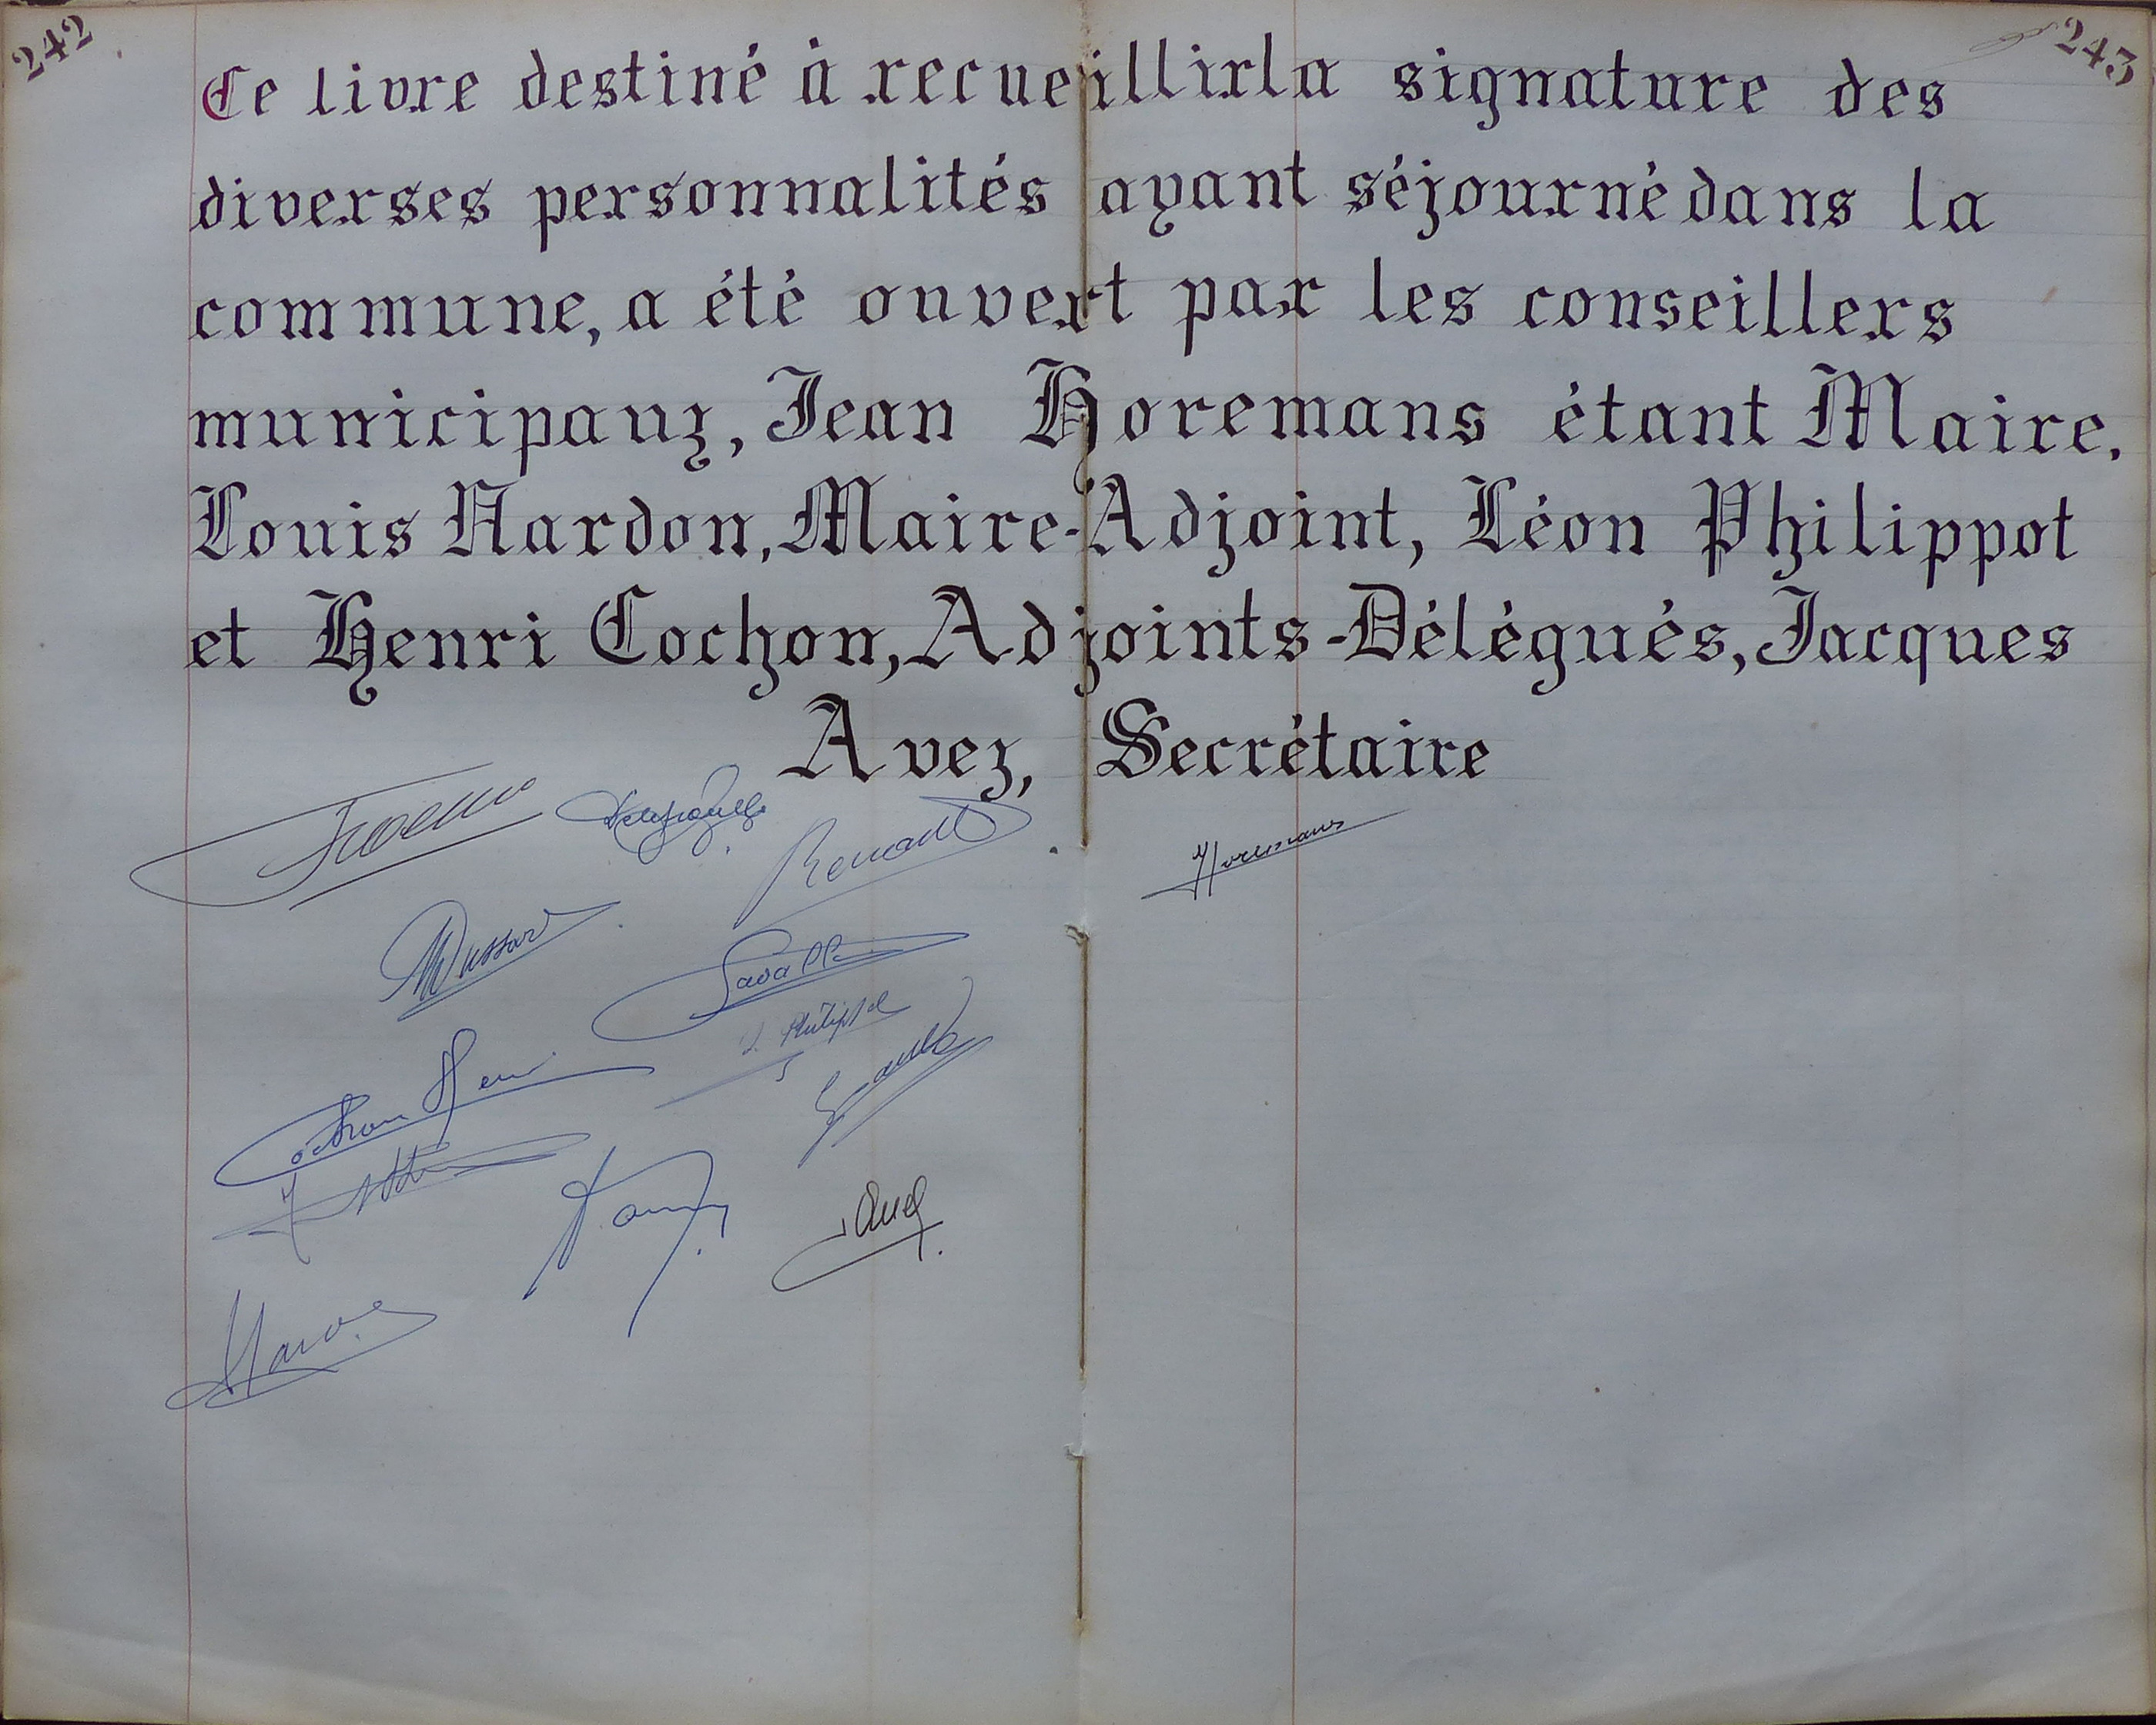 242
243
Ce livre destiné à recueillir la signature des
diverses personnalités ayant séjourné dans la
commune, a été ouvert par les conseillers
municipaux, Jean Horemans étant Maire.
Louis Nardon, Maire-Adjoint, Léon Philippot
et Henri Cochon, Adjoints-Délégués, Jacques
Avez, Secrétaire
Renault
Horemans
Dussart
L. Philippot
Cochon Henri